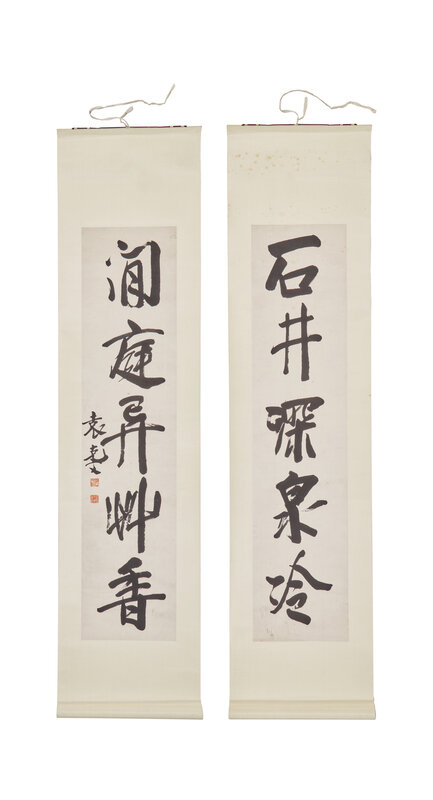 石井深泉冷
闲庭异艸香
袁克文